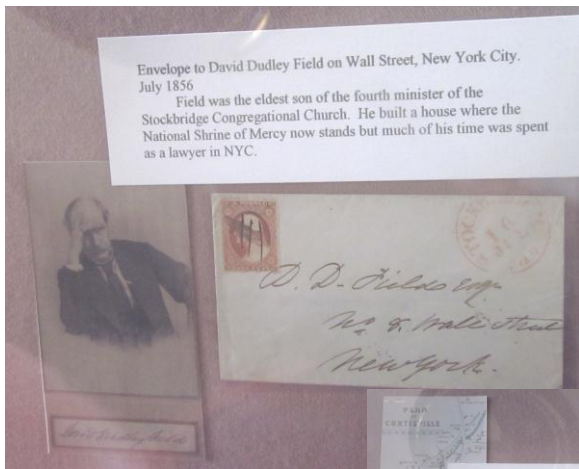 Envelope to David Dudley Field on Wall Street, New York City.
July 1856
Field was the eldest son of the fourth minister of the
Stockbridge Congregational Church. He built a house where the
National Shrine of Mercy now stands but much of his time was spent
as a lawyer in NYC.
D. D. Fields Esq
No 8. Wall Street
New York.
David Dudley Field
PLAN
OF
CURTISVILLE